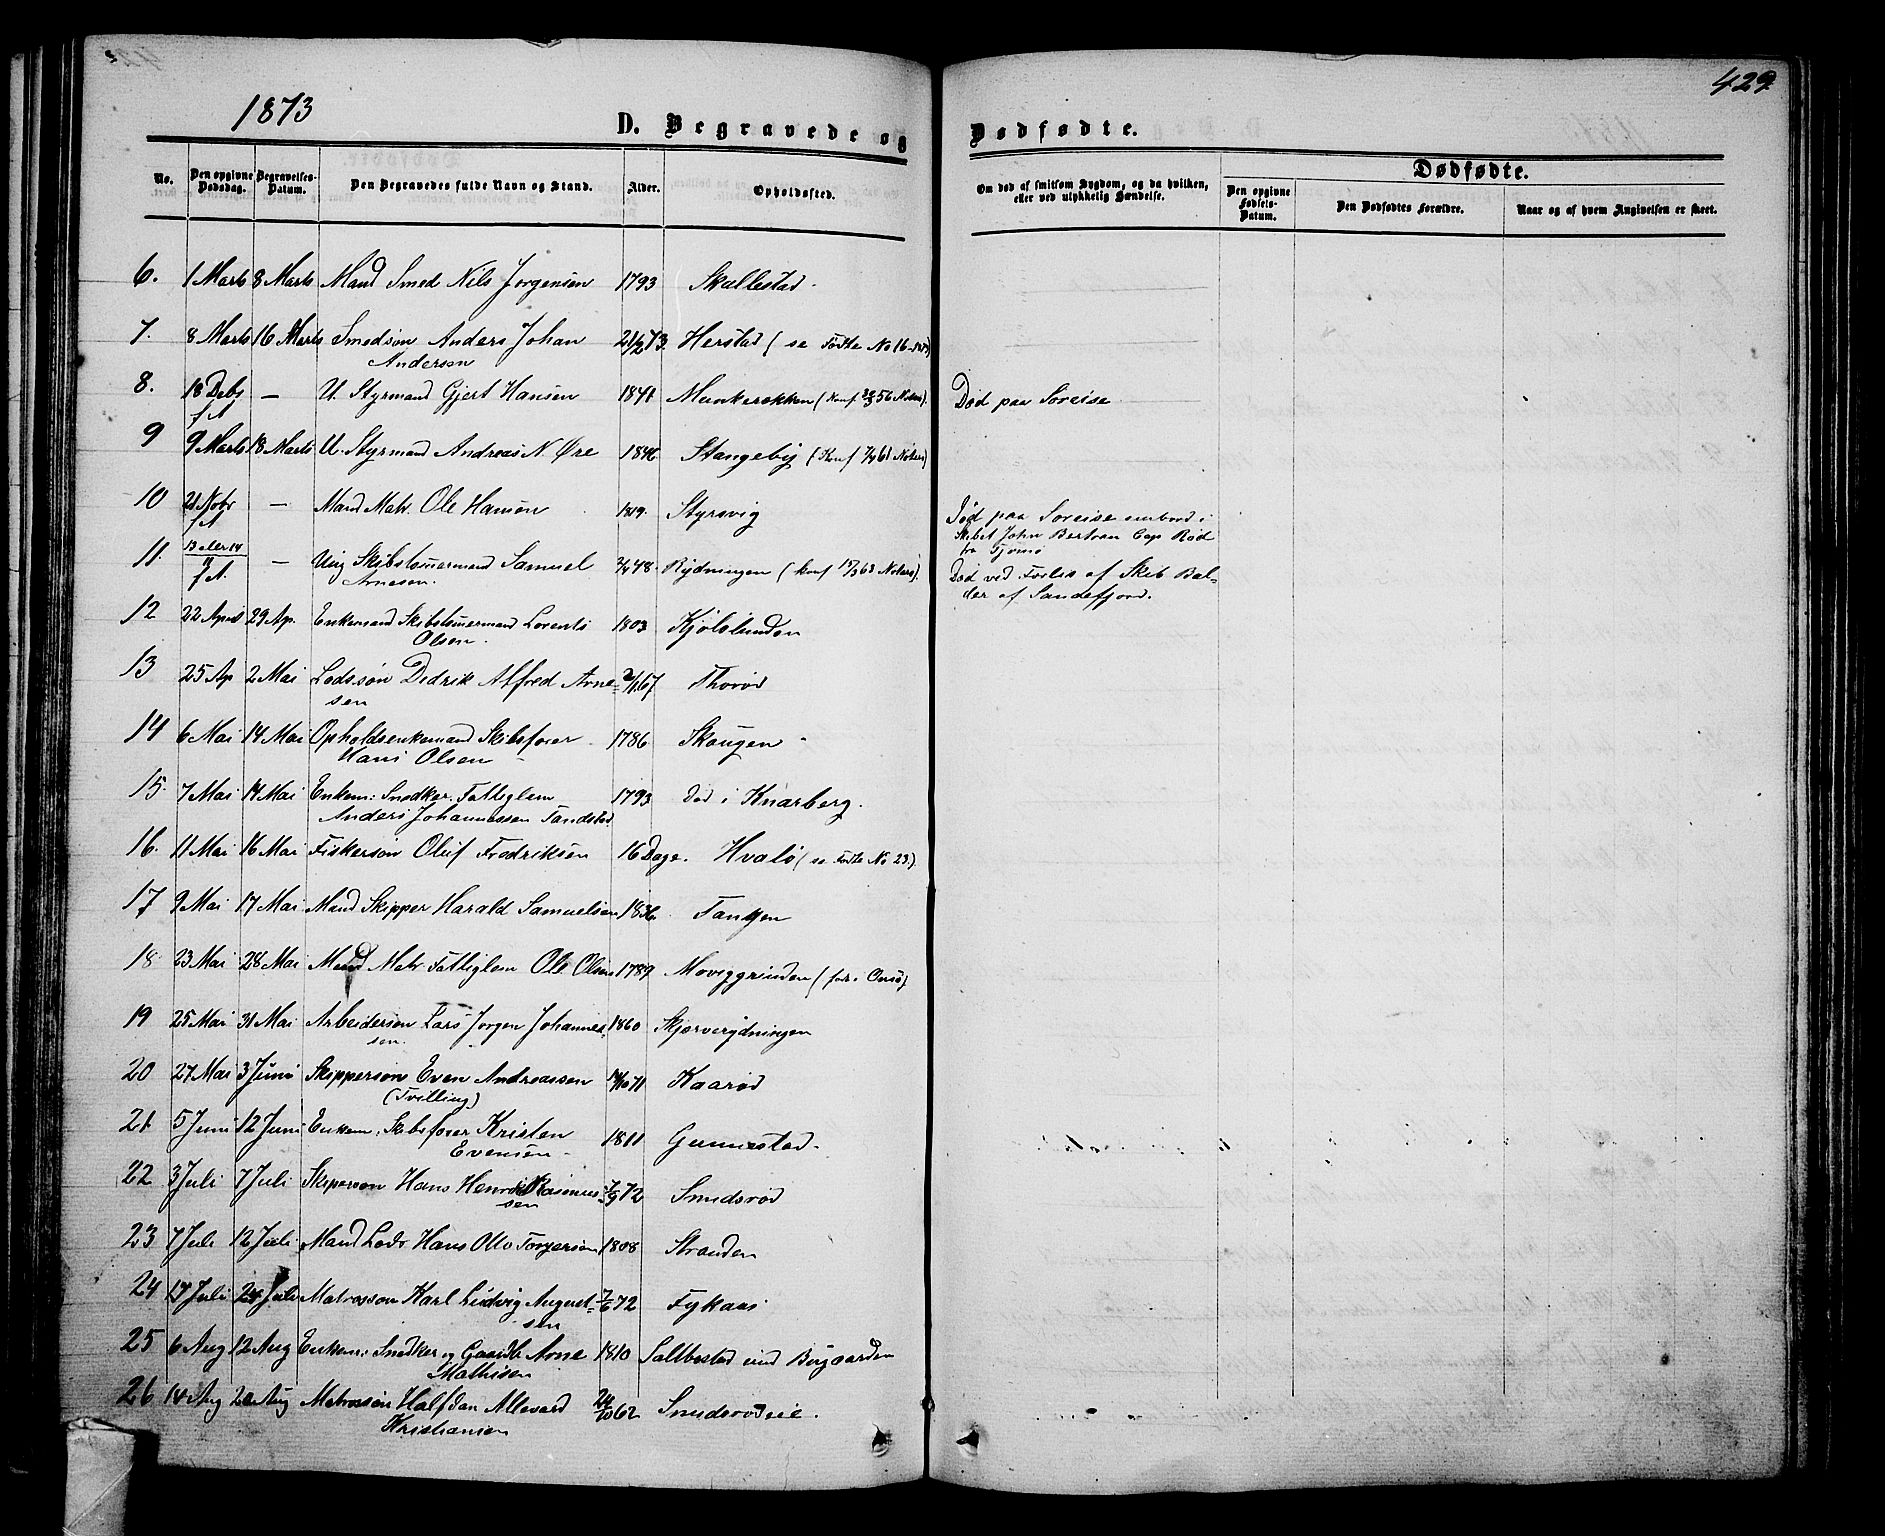 429
1873
D. Begravede og Dødfødte.
No.
Den opgivne Dødsdag.
Begravelses-Datum.
Den Begravedes fulde Navn og Stand.
Alder.
Opholdssted.
Om død af smitsom Sygdom, og da hvilken, eller ved ulykkelig Hændelse.
Dødfødte.
Den opgivne Fødsels-Datum.
Den Dødfødtes Forældre.
Naar og af hvem Angivelsen er skeet.
6. 1 Marts 8 Marts Mand Smed Nils Jørgensen 1793 Skallestad.
7. 8 Marts 16 Marts Smedsøn Anders Johan 21/2 73. Herstad (se Fødte No 16
Andersen
8. 18 Debr — U. Styrmand Gjert Hansen 1841 Munkerekken (Konf 56 Nøterø). Død paa Søreise
f A
9 9 Marts 18 Marts U. Styrmand Andreas N. Øre 1846 Stangeby (Konf 7/4 61 Nøterø)
10 21 Nobr — Mand Matr. Ole Hansen 1819. Styrsvig Død paa Søreise ombord i
f A Skibet John Bertran Cap Rød
fra Tjømø
11. 13 eller 14 — Ung Skibstømermand Samuel 2/4 48. Rydningen (konf 15/3 63 Nøterø). Død ved Forlis af Skib Bal-
f A. Arnesen. der af Sandefjord.
12 22 April 29 Ap. Enkemand Skibstømermand Lorents 1803 Kjølslunden
Olsen.
13 25 Ap 2 Mai Lodssøn Didrik Alfred Arne= 2/1 67 Thorød
sen
14 6 Mai 14 Mai Opholdsenkemand Skibsfører 1786 Skougen
Hans Olsen
15. 7 Mai 14 Mai Enkem: Snedker. Fattiglem 1793 Død i Knarberg.
Anders Johannessen Tandstad
16. 11 Mai 16 Mai Fiskersøn Oluf Fredriksen 16 Dage. Hvalø (se Fødte No 23.)
17 9 Mai 17 Mai Mand Skipper Harald Samuelsen 1836. Tangen
18. 23 Mai 28 Mai Mand Matr Fattiglem Ole Olsen 1789 Moviggrinden (fød i Onsø)
19 25 Mai 31 Mai Arbeidersøn Lars Jørgen Johannes= 1860 Skjærverydningen
sen.
20 27 Mai 3 Juni Skippersøn Even Andreassen 14/10 71 Kaarød
(Tvilling)
21 5 Juni 12 Juni Enkem: Skibsfører Kristen 1811 Gunnestad.
Evensen
22 3 Juli 7 Juli Skippersøn Hans Henrik Rasmus= 7/9 72 Smidsrød
sen
23 7 Juli 12 Juli Mand Lods Hans Otto Torgersen 1808 Stranden
24 17 Juli 24 Juli Matrossøn Karl Ludvig August= 7/6 72 Fykaas
sen
25 6 Aug 12 Aug Enkem: Snedker og Gaardb Arne 1810 Saltbestad und Bergaarden
Mathisen
26 14 Aug 20 Aug Matrossøn Halfdan Allevard 24/10 62 Smidsrødeie.
Kristiansen